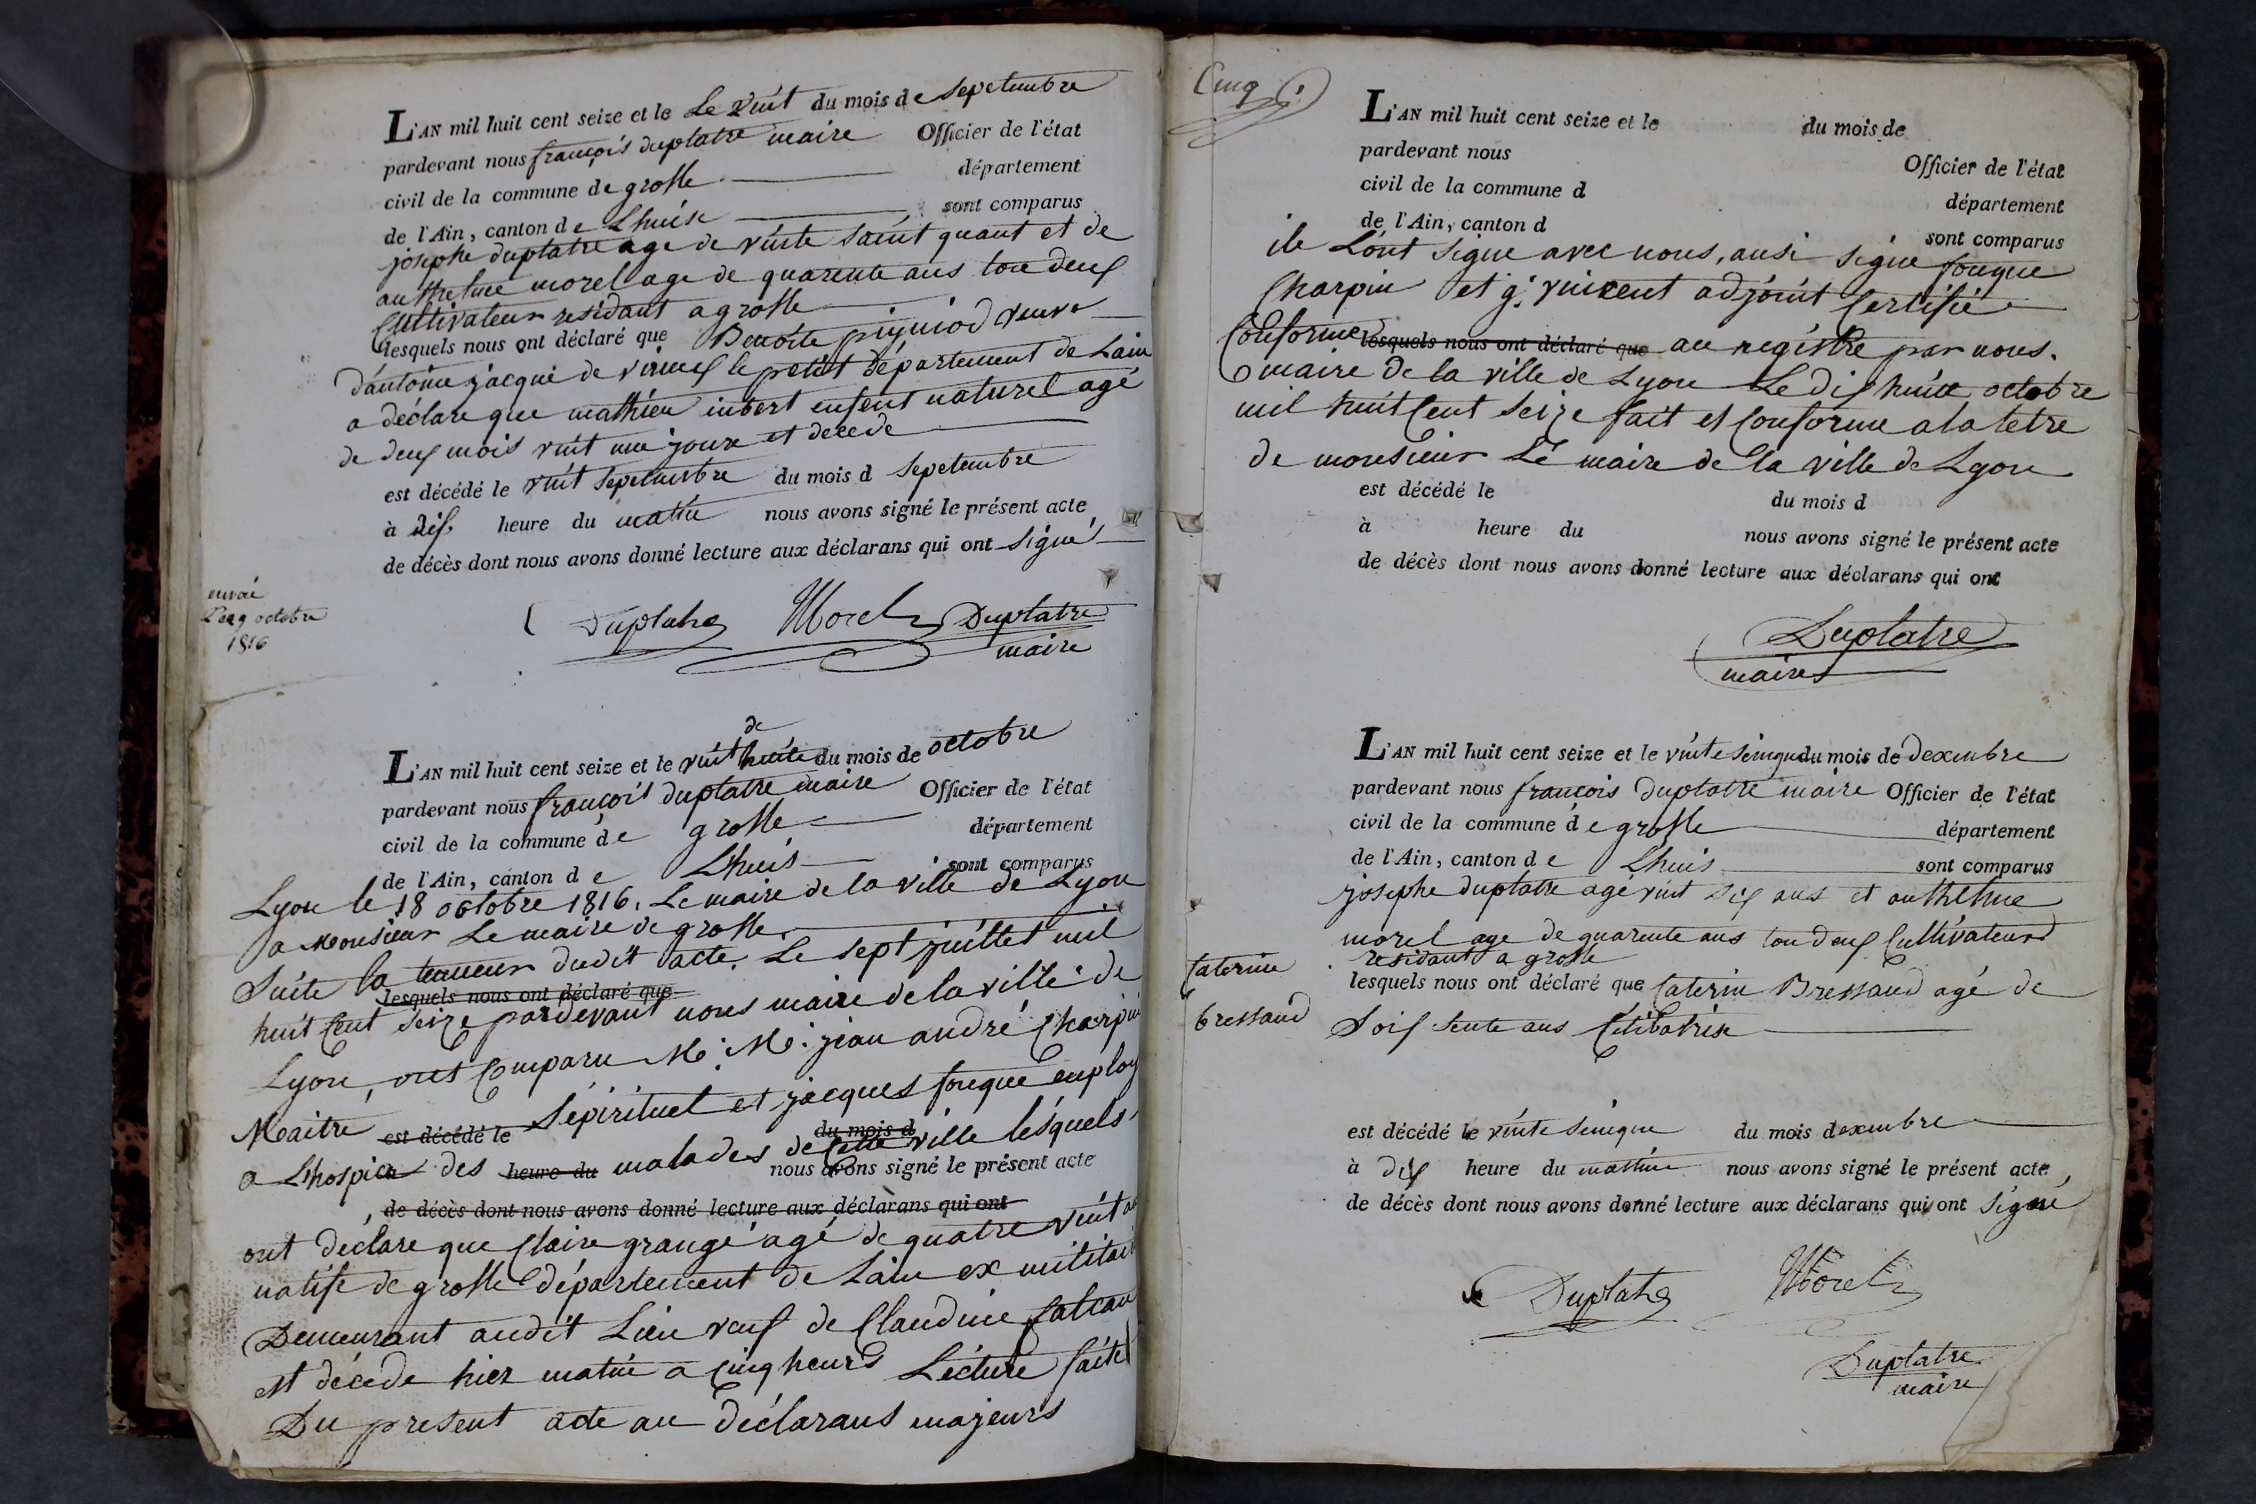 L'AN mil huit cent seize et le Le vint du mois de sepetembre
pardevant nous françois duplatre maire Officier de l'état
civil de la commune de groslle département
de l'Ain, canton de Lhuis sont comparus
josephe duplatre age de vinte saint quant et de
anthelme morel age de quarente ans tou deuf
Cultivateur residant a groslle
lesquels nous ont déclaré que Benoite pigniod veuve
d'antoine jacqui de virieuf le petit département de Lain
a déclare que mathieu imbert enfent naturel agé
de deuf mois vint une joure et decede
est décédé le vint sepetembre du mois d sepetembre
à dif heure du matin nous avons signé le présent acte
de décès dont nous avons donné lecture aux déclarans qui ont signé
envoié
Le 29 octobre
1816
Duplatre Morel Duplatre
maire
de
L'AN mil huit cent seize et le vint huite du mois de octobre
pardevant nous françois duplatre maire Officier de l'état
civil de la commune de groslle département
de l'Ain, canton de Lhuis sont comparus
Lyon le 18 octobre 1816. Le maire de la ville de Lyon
a Monsieur Le maire de groslle.
Suite la teneur dudit acte. Le sept juillet mil
lesquels nous ont déclaré que
huit Cent seize pardevant nous maire de la ville de
Lyon, ont Comparu M. M. jean andré Charpin
Maitre est décédé le Sépirituel et jacques fouque employ
du mois d
a Lhospice des heure du malades de Cette ville lesquels
nous avons signé le présent acte
de décès dont nous avons donné lecture aux déclarans qui ont
ont déclare que Claire grangé agé de quatre vint an
natife de groslle département de Lain ex militair
Demeurant audit Lieu veuf de Claudine falcan
est décede hier matin a Cinq heurs Lecture faite
Du present acte au déclarans majeurs
Cinq
L'AN mil huit cent seize et le du mois de
pardevant nous Officier de l'état
civil de la commune d département
de l'Ain, canton d sont comparus
ile Lont signe avec nous, ausi signe fouque
Charpin et g. vincent adjoint Certifié
Conforme lesquels nous ont déclaré que au registre par nous.
maire de la ville de Lyon Le dif huite octobre
mil huit Cent seize fait et Conforme a la letre
de monsieur Le maire de la ville de Lyon
est décédé le du mois d
à heure du nous avons signé le présent acte
de décès dont nous avons donné lecture aux déclarans qui ont
Duplatre
maire
L'AN mil huit cent seize et le vinte seinque du mois de dexembre
pardevant nous francois Duplatre maire Officier de l'état
civil de la commune de groslle département
de l'Ain, canton de Lhuis sont comparus
josephe duplatre agé vint sif ans et anthelme
morel age de quarente ans tou deuf Cultivateurs
residant a groslle
lesquels nous ont déclaré que Caterin Bressaud agé de
Soif sente ans Celibatrix
Caterine
bressaud
est décédé le vinte seinque du mois dexembre
à dif heure du mattin nous avons signé le présent acte
de décès dont nous avons donné lecture aux déclarans qui ont signé
Duplatre Morel
Duplatre
maire